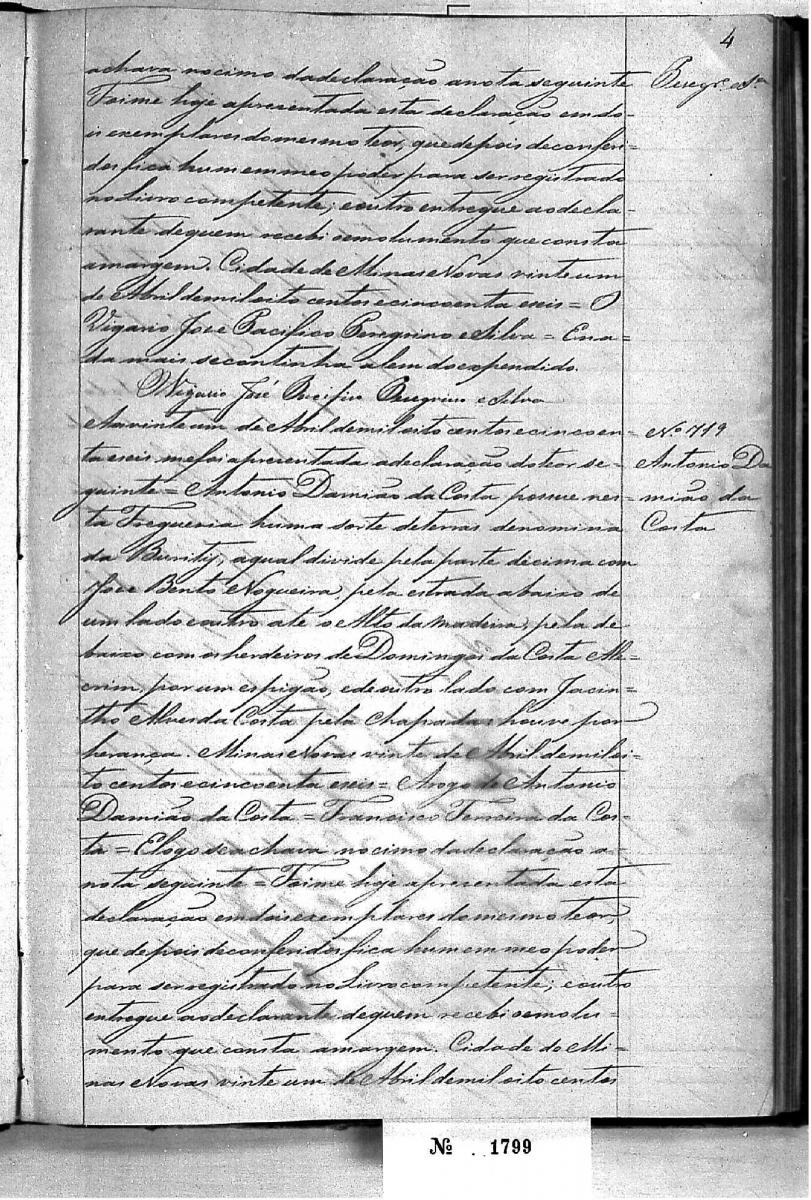 4
achava no cimo da declaração a nota seguinte
Peregr.º e S.ª
Foime hoje apresentada esta declaração em do-
is exemplares do mesmo teor, que depois de conferi-
dos fica hum em meo poder para ser registrado
no Livro competente; e outro entregue ao decla-
rante de quem recebi o emolumento que consta
amargem. Cidade de Minas Novas vinte um
de Abril de mil oito centos e cincoenta e seis = O
Vigario Jose Pacifico Peregrino e Silva = E na-
da mais se continha alem do expendido.
O Vigario José Pacifico Peregrino e Silva
Aos vinte um de Abril de mil oito centos e cincoen-
Nº 719
ta e seis me foi apresentada a declaração do teor se-
Antonio Da
guinte = Antonio Damião da Costa possue nes-
mião da
ta Freguesia huma sorte de terras denomina
Costa
da Burity, a qual divide pela parte decima com
Jose Bento Nogueira, pela estrada abaixo de
um lado e outro até o Alto da madeira; pela de
baixo com os herdeiros de Domingos da Costa Ale-
crim, por um espigão, e de outro lado com Jacin-
tho Alves da Costa pela chapada: houve por
herança. Minas Novas vinte de Abril de mil oi-
to centos e cincoenta e seis = Arogo de Antonio
Damião da Costa = Francisco Ferreira da Cos-
ta = E logo se achava no cimo da declaração a-
nota seguinte = Foime hoje apresentada esta
declaração em dois exemplares do mesmo teor,
que depois de conferidos fica hum em meo poder
para ser registrado no Livro competente; e outro
entregue ao declarante de quem recebi o emolu-
mento que consta amargem. Cidade de Mi-
nas Novas vinte um de Abril de mil oito centos
Nº . 1799